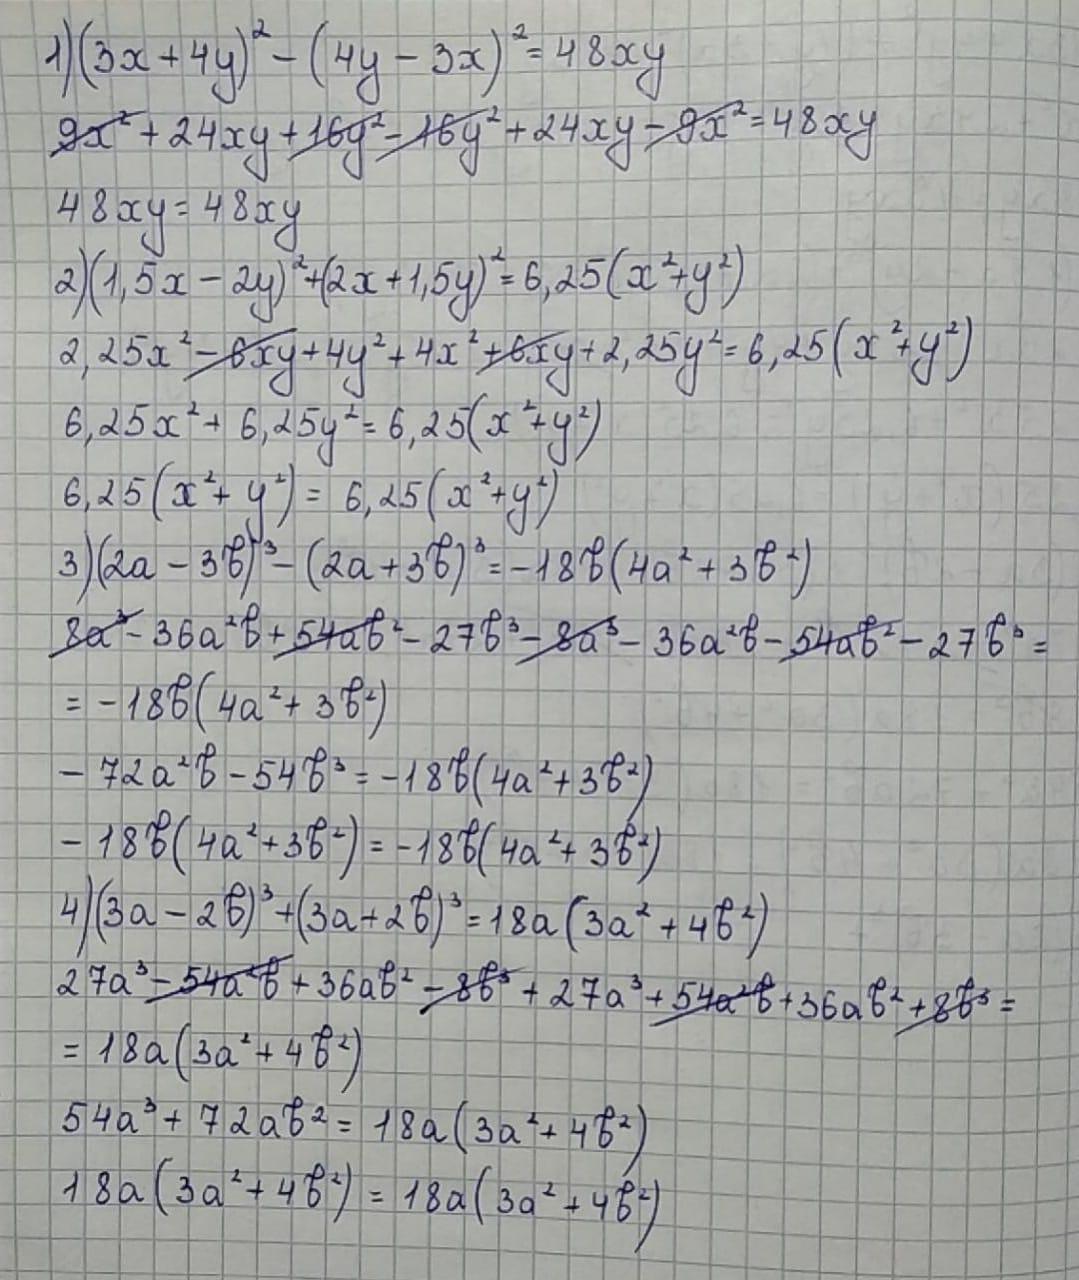 1)(3x+4y)²-(4y-3x)²=48xy
9x²+24xy+16y²-16y²+24xy-9x²=48xy
48xy=48xy
2)(1,5x-2y)²+(2x+1,5y)²=6,25(x²+y²)
2,25x²-6xy+4y²+4x²+6xy+2,25y²=6,25(x²+y²)
6,25x²+6,25y²=6,25(x²+y²)
6,25(x²+y²)=6,25(x²+y²)
3)(2a-3b)³-(2a+3b)³=-18b(4a²+3b²)
8a³-36a²b+54ab²-27b³-8a³-36a²b-54ab²-27b³=
=-18b(4a²+3b²)
-72a²b-54b³=-18b(4a²+3b²)
-18b(4a²+3b²)=-18b(4a²+3b²)
4)(3a-2b)³+(3a+2b)³=18a(3a²+4b²)
27a³-54a²b+36ab²-8b³+27a³+54a²b+36ab²+8b³=
=18a(3a²+4b²)
54a³+72ab²=18a(3a²+4b²)
18a(3a²+4b²)=18a(3a²+4b²)